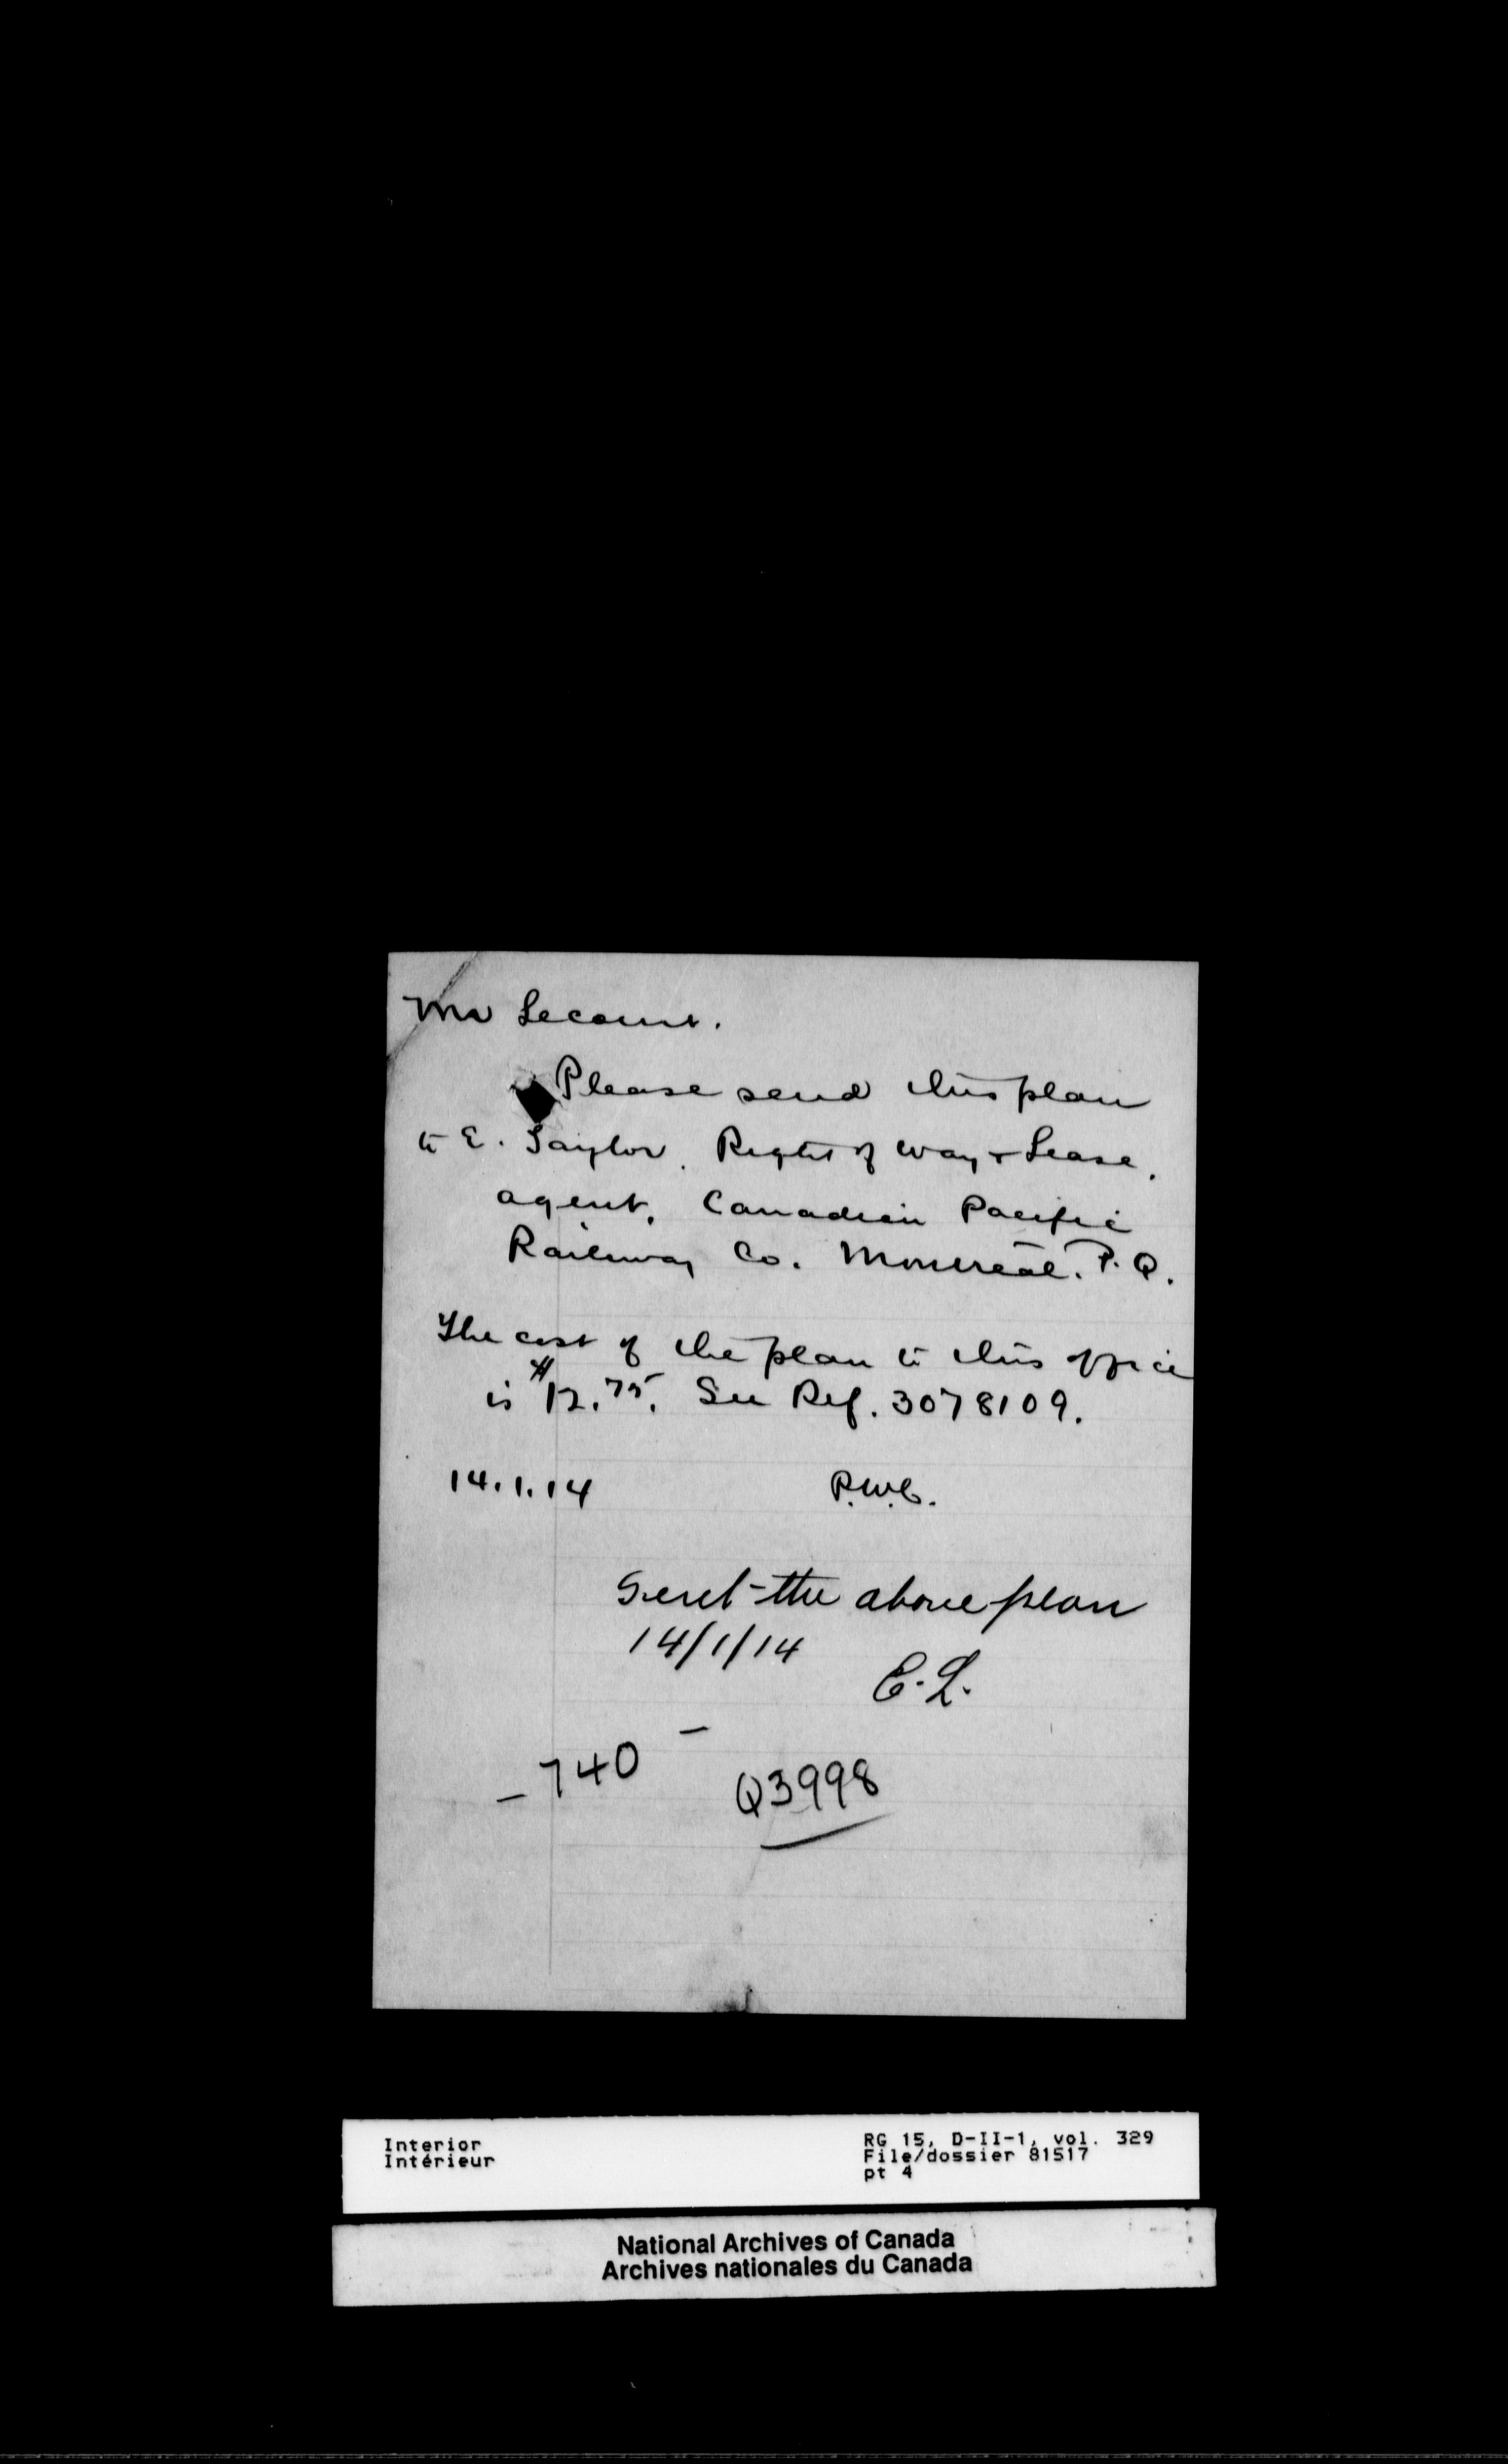 Mr Lecourt.
Please send this plan
to E. Taylor. Right of Way & Lease.
agent. Canadian Pacific
Railway Co. Montreal. P.Q.
The cost of the plan to this office
is $12.75. See Ref. 3078109.
14.1.14 P.W.C.
Sent the above plan
14/1/14
E.L.
- 740 -
Q3998
Interior
Intérieur
RG 15, D-II-1, vol. 329
File/dossier 81517
pt 4
National Archives of Canada
Archives nationales du Canada